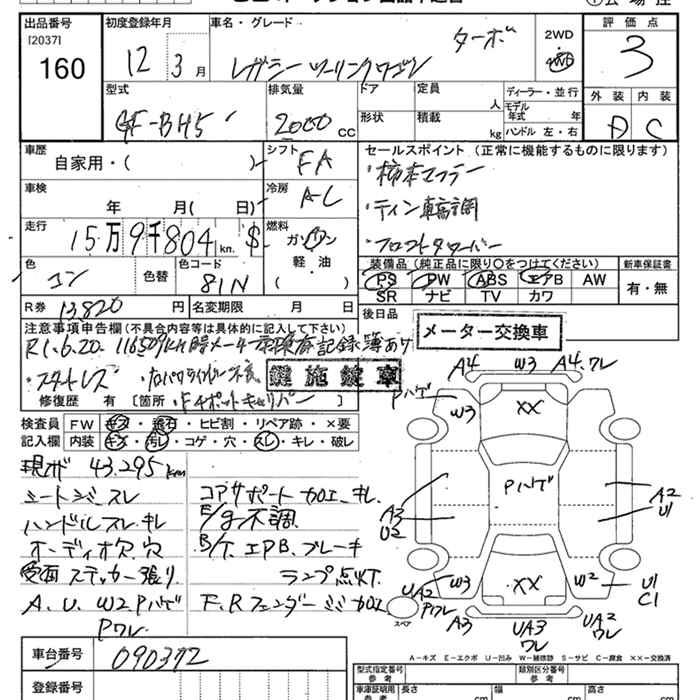 出品番号 初度登録年月 車名・グレード ターボ 2WD 4WD 評価点
[2037]
160 12年 3月 レガシーツーリングワゴン 3
外装 内装
型式 排気量 ドア 定員 人 ディーラー・並行
モデル年式 年
GF-BH5 2000cc 形状 積載 kg ハンドル 左・右 D C
車歴 自家用・( ) シフト FA セールスポイント (正常に機能するものに限ります)
・柿本マフラー
車検 年 月( 日) 冷房 AC
・テイン車高調
走行 15万9千804km $ 燃料 ガソリン 軽・油
・フロントタワーバー
色 コン 色替 色コード 81N
装備品(純正品に限り○をつけてください) 新車保証書
PS PW ABS エアB AW 有・無
SR ナビ TV カワ
R券 13,820円 名変期限 月 日 後日品
メーター交換車
注意事項申告欄(不具合内容等は具体的に記入して下さい)
R1.6.20. 116509km時メーター交換 記録簿あり
・スタットレス
修復歴 有 [箇所
検査員 FW キズ・飛石・ヒビ割・リペア跡・×要
記入欄 内装 キズ・汚レ・コゲ・穴・スレ・キレ・破レ
現メーター 43,295km
シートシミスレ コアサポート加工、キレ
ハンドルスレ、キレ E/g不調
オーディオ欠、穴 B/T、エアB、ブレーキ
ステッカー張り ランプ点灯
A、U、W2 Pハゲ F、Rフェンダーミミ加工
Pワレ
A4 W3 A4、ワレ
Pハゲ W3 XX
Pハゲ
A3 U2 A2 U1
UA2 Pワレ W3 XX W2 U1 C1
スペア A3 UA3 ワレ UA2 ワレ
A-キズ E-エクボ U-凹み W-補修跡 S-サビ C-腐食 ××-交換済
車台番号 090372 型式指定番号 類別区分番号
登録番号 車庫証明用参考 長さ cm 幅 cm 高さ cm